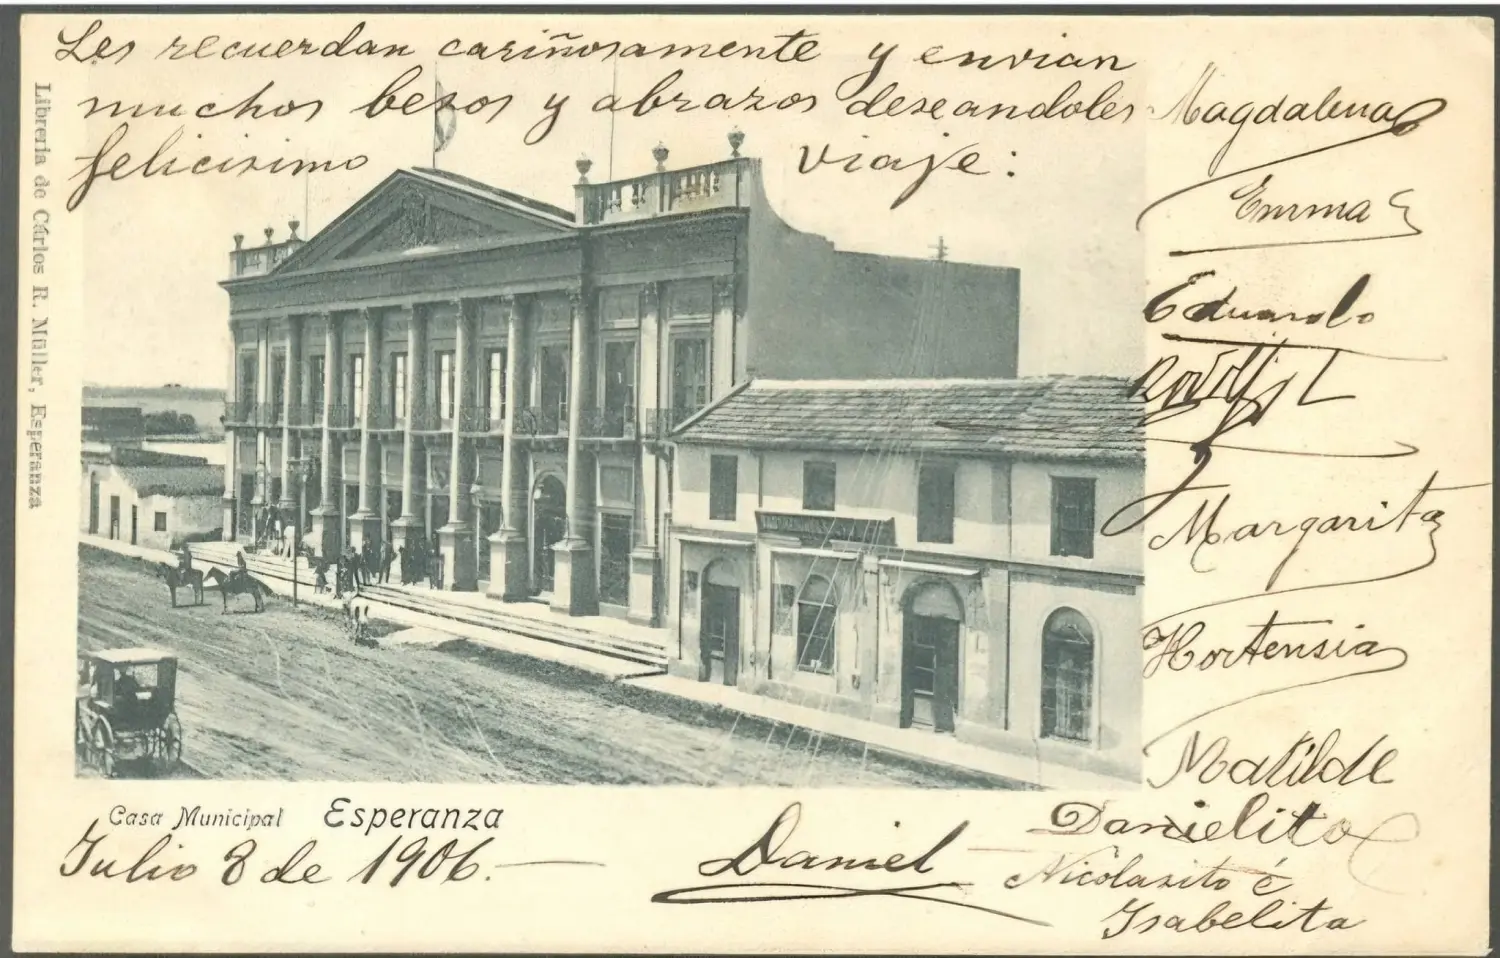 Les recuerdan cariñosamente y envian
muchos besos y abrazos deseandoles
felicisimo viaje:
Magdalena
Emma
Eduardo
Margarita
Hortensia
Matilde
Danielito
Nicolasito é
Isabelita
Daniel
Casa Municipal Esperanza
Julio 8 de 1906.
Libreria de Cárlos R. Müller, Esperanza